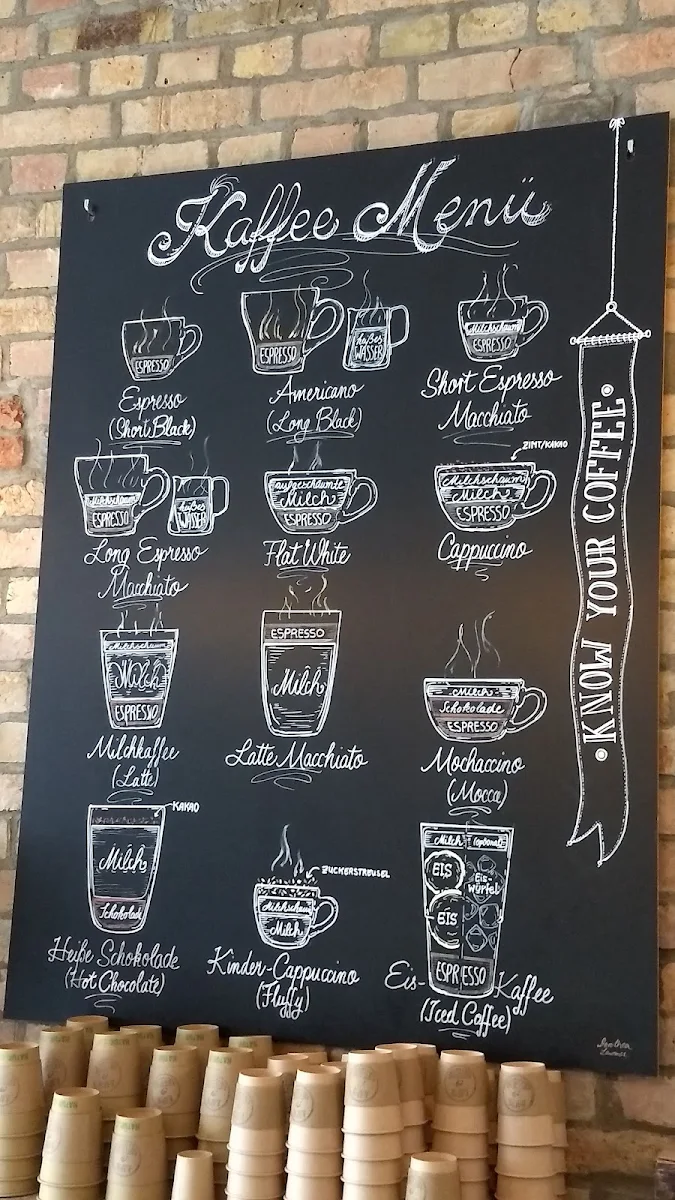 Kaffee Menü
ESPRESSO
Espresso
(Short Black)
ESPRESSO
heißes
WASSER
Americano
(Long Black)
Milchschaum
ESPRESSO
Short Espresso
Macchiato
Milchschaum
ESPRESSO
heißes
WASSER
Long Espresso
Macchiato
aufgeschäumte
Milch
ESPRESSO
Flat White
ZIMT/KAKAO
Milchschaum
Milch
ESPRESSO
Cappuccino
Milchschaum
Milch
ESPRESSO
Milchkaffee
(Latte)
ESPRESSO
Milch
Latte Macchiato
Milch
Schokolade
ESPRESSO
Mochaccino
(Mocca)
KAKAO
Milch
Schokolade
Heiße Schokolade
(Hot Chocolate)
ZUCKERSTREUSEL
Milchschaum
Milch
Kinder-Cappuccino
(Fluffy)
Milch (optional)
EIS
EIS
Eis-
Würfel
ESPRESSO
Eis-Kaffee
(Iced Coffee)
KNOW YOUR COFFEE